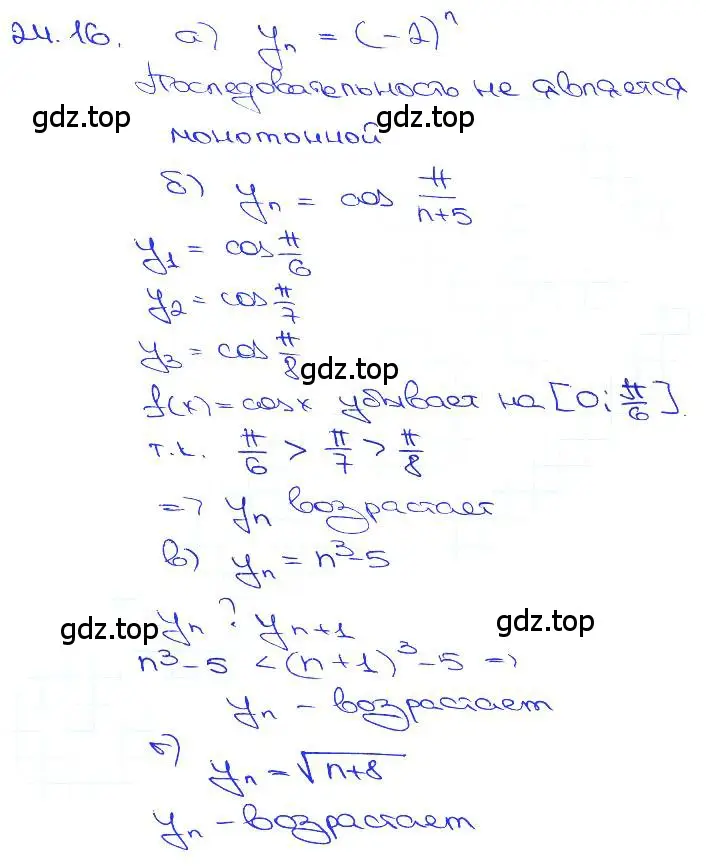 24.16. а) yₙ = (-2)ⁿ
Последовательность не является
gdz.top gdz.top
монотонной
б) yₙ = cos π/(n+5)
y₁ = cos π/6
y₂ = cos π/7
y₃ = cos π/8
gdz.top
f(x) = cosx убывает на [0; π/6].
т.к. π/6 > π/7 > π/8
=> yₙ возрастает
в) yₙ = n³-5
yₙ ? yₙ₊₁
gdz.top gdz.top
n³-5 < (n+1)³-5 =>
yₙ - возрастает
г) yₙ = √(n+8)
yₙ - возрастает